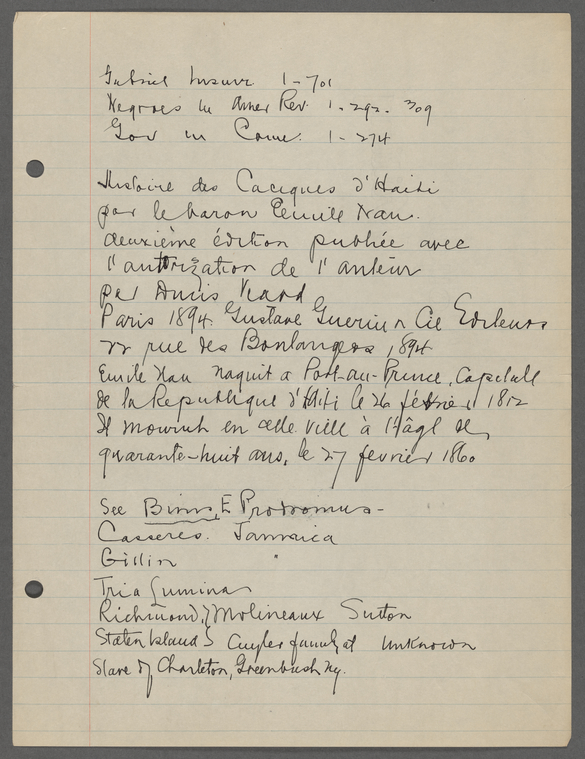 Gabriel Insurr. 1-701
Negroes in Amer Rev. 1-292-309
Gov in Conn. 1-274
Histoire des Caciques d'Haiti
par le baron Emile Nau.
deuxième édition publiée avec
l'autorization de l'auteur
par Ducis Viard
Paris 1894. Gustave Guerin & Cie Editeurs
22 rue des Boulangers, 1894
Emile Nau naquit a Port-au-Prince, Capitale
de la Republique d'Haiti le 26 février 1812
Il mourut en cette ville à l'âge de
quarante-huit ans, le 27 fevrier 1860
See Binns, E Prodromus-
Casseres. Jamaica
Gillin "
Tria Lumina
Richmond } Molineaux Sutton
Staten Island } Cuyler family at unknown
Slave of Charleton, Greenbush Ny.